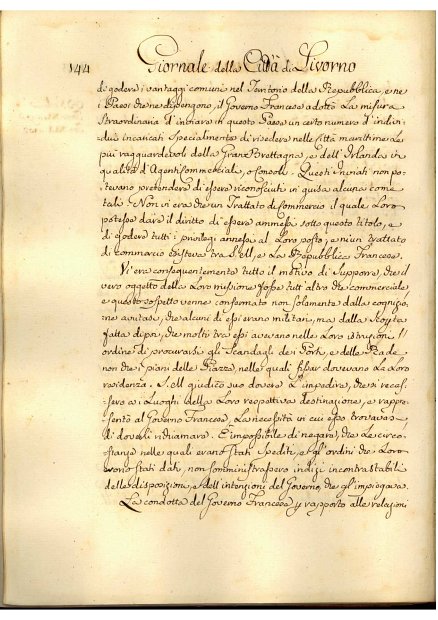 144 Giornale della Città di Livorno
di godere i vantaggi comuni nel Territorio della Repubblica, e ne
i Paesi che ne dipengono, il Governo Francese adottò La misura
straordinaria d'inviare in questo Paese un certo numero d'indivi-
dui incaricati specialmente di risedere nelle Città marittime Le
più ragguardevoli della Gran Brettagna, e dell'Irlanda in
qualità d'Agenti Commerciali, o Consoli. Questi Inviati non po-
tevano pretendere di essere riconosciuti in guisa alcuna come
tali. Non vi era che un Trattato di Commercio il quale Loro
potesse dare il diritto di essere ammessi sotto questo titolo, e
di godere tutti i privilegj annessi al Loro posto, e niun trattato
di Commercio esisteva tra S. M., e La Repubblica Francese.
Vi era conseguentemente tutto il motivo di supporre, che il
vero oggetto della Loro missione fosse tutt'altro che commerciale,
e questo sospetto venne confermato non solamente dalla cognizio-
ne avutasi, che alcuni di essi erano militari, ma dalla scoperta
fatta dipoi, che molti tra essi avevano nelle Loro istruzioni l'
ordine di procurarsi gli Scandagli de Porti, e delle Rade
non che i piani delle Piazze, nelle quali fissar dovevano La Loro
residenza. S. M. giudicò suo dovere L'impedire, che si recas-
sero a' Luoghi della Loro respettiva destinazione, e rappre-
sentò al Governo Francese, La necessità in cui esso trovavasi
di doverli richiamare. È impossibile di negare, che Le circo-
stanze nelle quali erano stati spediti, e gl'ordini che Loro
erano stati dati, non somministrassero indizj incontrastabili
delle disposizioni, e dell'intenzioni del Governo, che gl'impiegava.
La condotta del Governo Francese p rapporto alle relazioni